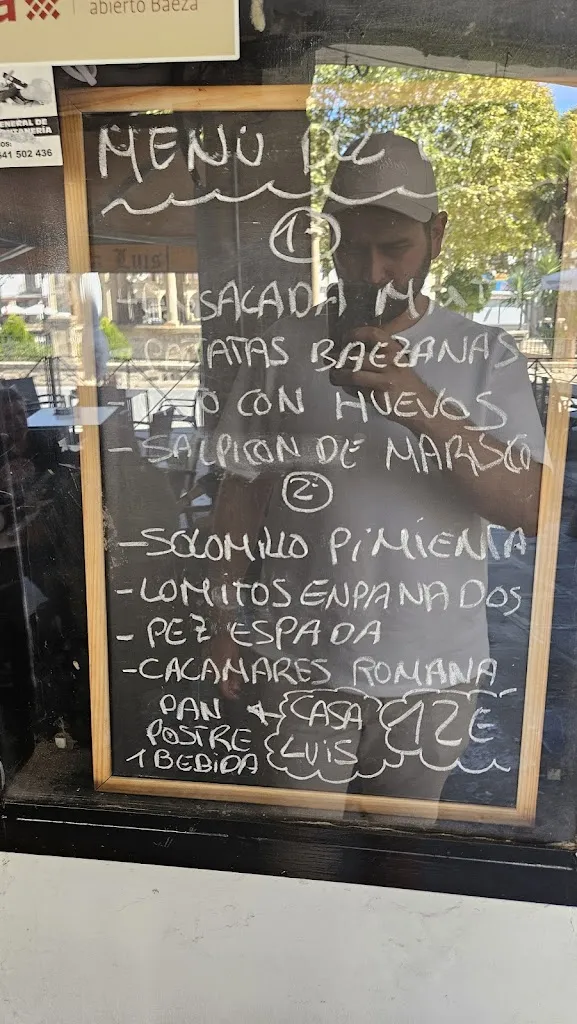 abierto Baeza
641 502 436
MENÚ DEL
1º
ENSALADA MIXTA
- PATATAS BAEZANAS
CON HUEVOS
- SALPICON DE MARISCO
2º
- SOLOMILLO PIMIENTA
- LOMITOS ENPANADOS
- PEZ ESPADA
- CALAMARES ROMANA
PAN
POSTRE
1 BEBIDA
CASA
LUIS
12€